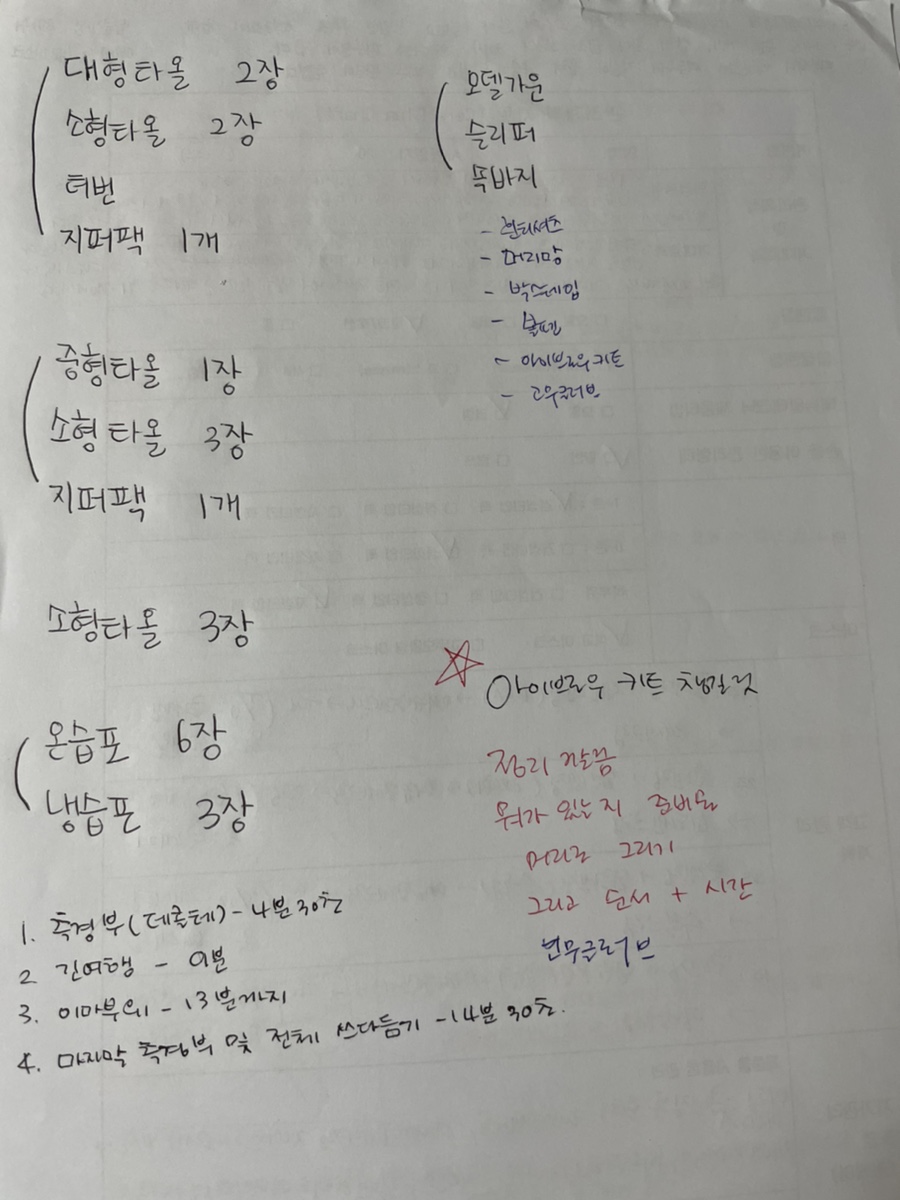 대형타올 2장
소형타올 2장
터번
지퍼팩 1개
중형타올 1장
소형타올 3장
지퍼팩 1개
소형타올 3장
온습포 6장
냉습포 3장
1. 측경부(데콜테) - 4분30초
2 긴여행 - 9분
3. 이마부위 - 13분까지
4. 마지막 측경부 및 전체 쓰다듬기 - 14분 30초.
모델가운
슬리퍼
쪽바지
- 흰티셔츠
- 머리망
- 박스테잎
- 볼펜
- 아이브로우 키트
- 고무글러브
아이브로우 키트 챙길것
정리 깔끔
뭐가 있는지 준비물
머리로 그리기
그리고 순서 + 시간
글러브